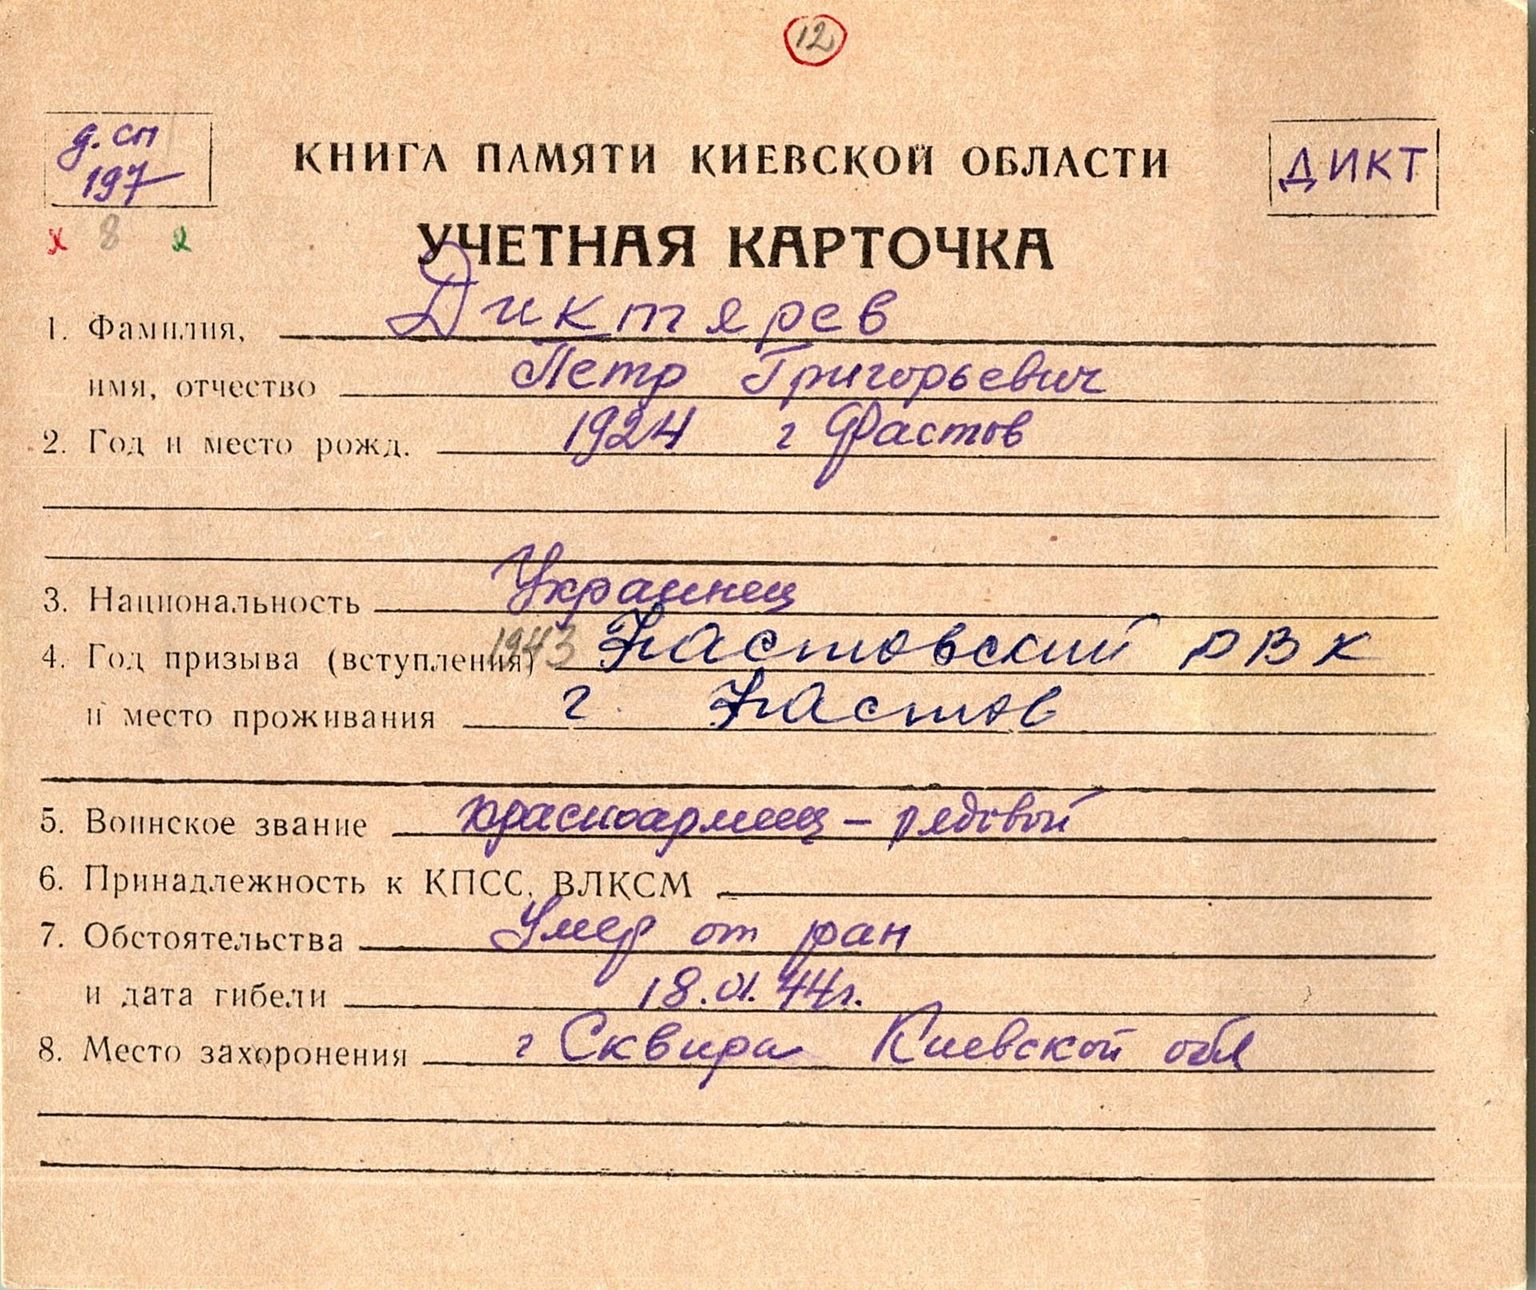 12
д. сп
197
КНИГА ПАМЯТИ КИЕВСКОЙ ОБЛАСТИ
ДИКТ
8
УЧЕТНАЯ КАРТОЧКА
1. Фамилия, Диктярев
имя, отчество Петр Григорьевич
2. Год и место рожд. 1924 г Фастов
3. Национальность Украинец
4. Год призыва (вступления) 1943 Фастовский РВК
и место проживания г. Фастов
5. Воинское звание красноармеец – рядовой
6. Принадлежность к КПСС, ВЛКСМ
7. Обстоятельства Умер от ран
и дата гибели 18.01.44г.
8. Место захоронения г Сквира Киевской обл